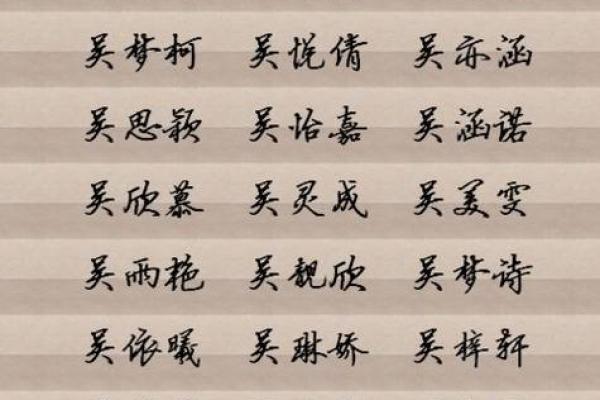 吴梦柯 吴悦倩 吴亦涵
吴思颖 吴怡嘉 吴涵诺
吴欣慕 吴灵成 吴美雯
吴雨艳 吴靓欣 吴梦诗
吴依曦 吴琳娇 吴梓轩